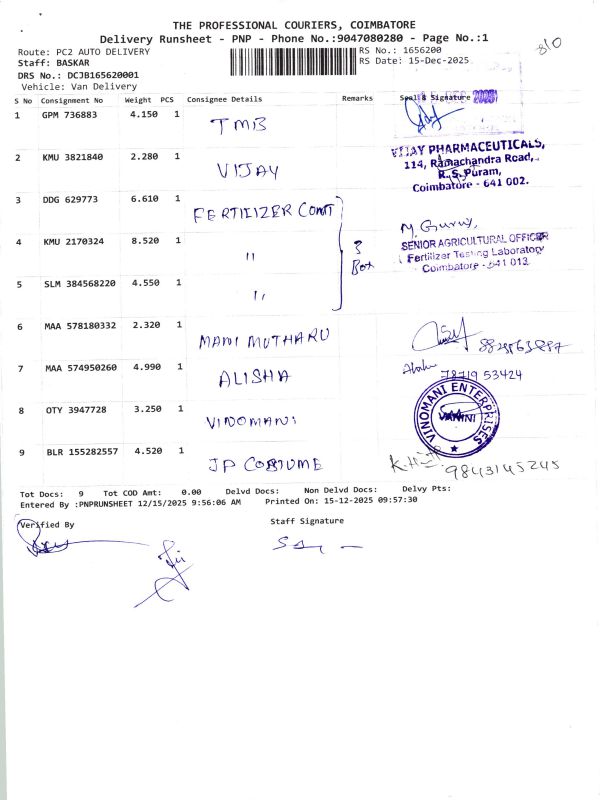 THE PROFESSIONAL COURIERS, COIMBATORE
Delivery Runsheet - PNP - Phone No.:9047080280 - Page No.:1
810
Route: PC2 AUTO DELIVERY
RS No.: 1656200
Staff: BASKAR
RS Date: 15-Dec-2025
DRS No.: DCJB165620001
Vehicle: Van Delivery
S No Consignment No Weight PCS Consignee Details Remarks Seal & Signature
1 GPM 736883 4.150 1 TMB
2 KMU 3821840 2.280 1 VIJAY
VIJAY PHARMACEUTICALS,
114, Ramachandra Road,
R.S. Puram,
Coimbatore - 641 002.
3 DDG 629773 6.610 1 FERTILIZER CONT
4 KMU 2170324 8.520 1 "
3 Box
M. Guruv,
SENIOR AGRICULTURAL OFFICER
Fertilizer Testing Laboratory
Coimbatore - 641 013.
5 SLM 384568220 4.550 1 "
6 MAA 578180332 2.320 1 MANI MUTHARU
7 MAA 574950260 4.990 1 ALISHA
78719 53424
8 OTY 3947728 3.250 1 VINOMANI
VINOMANI ENTERPRISES
9 BLR 155282557 4.520 1 JP COSTUME
9843145245
Tot Docs: 9 Tot COD Amt: 0.00 Delvd Docs: Non Delvd Docs: Delvy Pts:
Entered By :PNPRUNSHEET 12/15/2025 9:56:06 AM Printed On: 15-12-2025 09:57:30
Verified By
Staff Signature